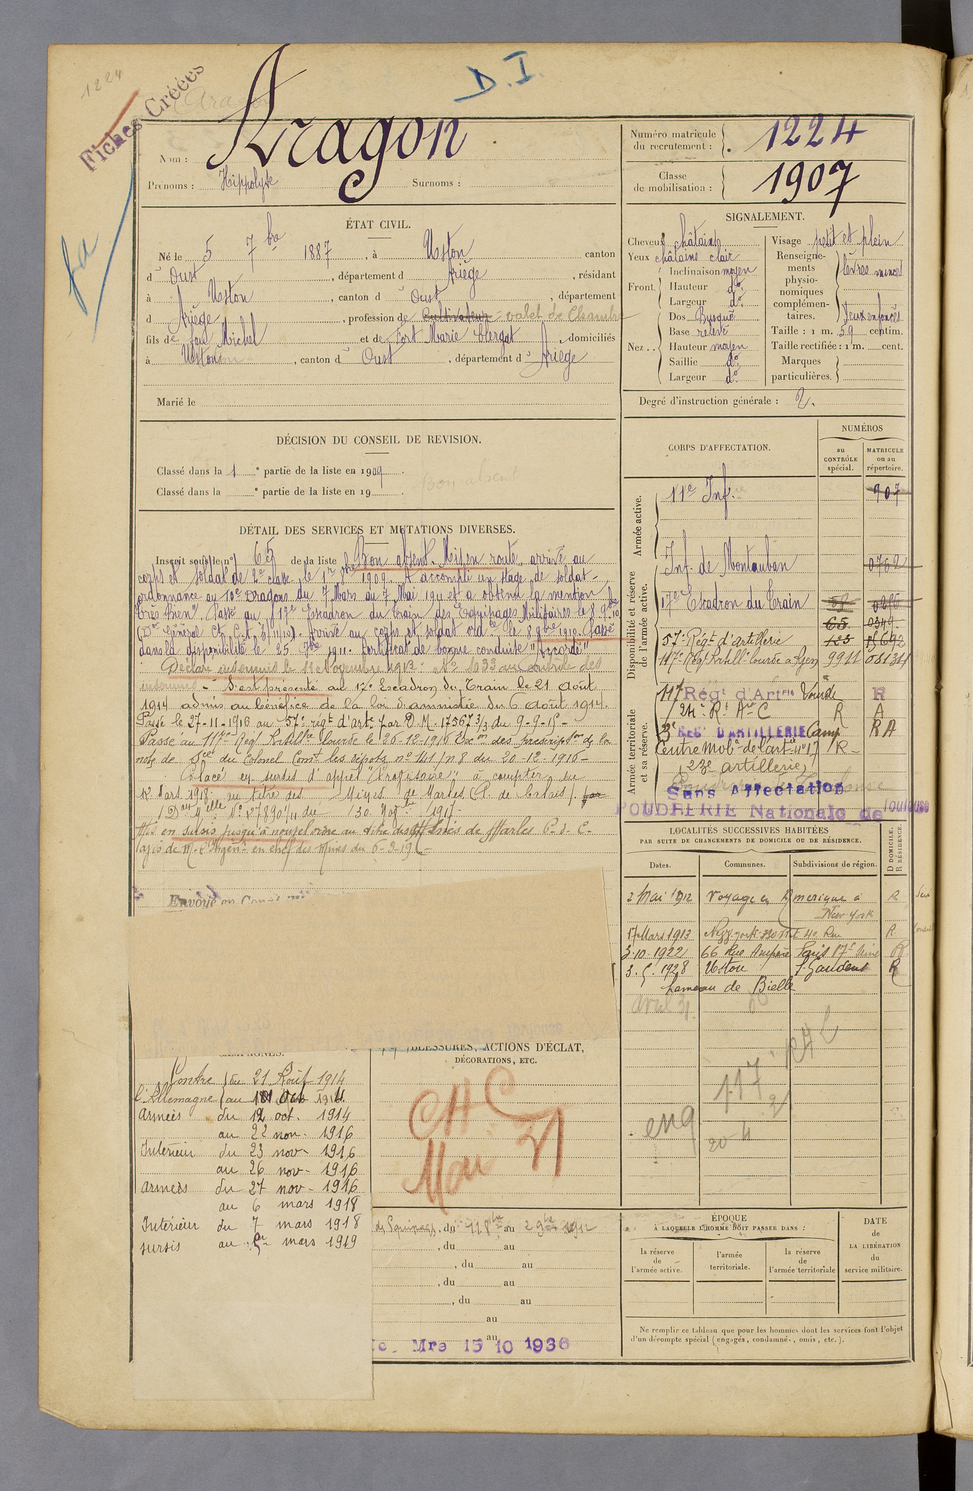 1224
Fiches Créées
D.I.
Nom : Aragon
Prénoms : Hippolyte Surnoms :
Numéro matricule du recrutement : 1224
Classe de mobilisation : 1907
ÉTAT CIVIL.
Né le 5 7bre 1887, à Ustou canton
d' Oust, département d' Ariège, résidant
à Ustou, canton d' Oust, département
d Ariège, profession de Cultivateur valet de Chambre
fils de feu Michel et de Fort Marie Clergat, domiciliés
à Ustou, canton d' Oust, département d' Ariège
Marié le
SIGNALEMENT.
Cheveux châtains
Yeux châtains clair
Front Inclinaison moyen
Hauteur do
Largeur do
Nez Dos Busqué
Base relevé
Hauteur moyen
Saillie do
Largeur do
Visage petit et plein
Renseignements physionomiques complémentaires. lèvres minces
Yeux enfoncés
Taille : 1 m. 59 centim.
Taille rectifiée : 1 m. cent.
Marques particulières.
Degré d'instruction générale : 2.
DÉCISION DU CONSEIL DE REVISION.
Classé dans la 1e partie de la liste en 1909
Classé dans la e partie de la liste en 19
Bon absent
DÉTAIL DES SERVICES ET MUTATIONS DIVERSES.
Inscrit sous le no 65 de la liste Bon absent. Mis en route, arrivé au
corps et soldat de 2e classe, le 1er 8bre 1909. A accompli un stage de soldat-
ordonnance au 10e Dragons du 7 Mars au 7 Mai 1911 et a obtenu la mention
"Très Bien". Passé au 17e Escadron du Train des Equipages Militaires le 8 9bre
Arrivé au corps et soldat ord le 8 9bre 1910. Passé
dans la disponibilité le 25 7bre 1911. Certificat de bonne conduite "Accordé"
Déclaré insoumis le 11 Novembre 1913. No 1033 au contrôle des
insoumis - S'est présenté au 17e Escadron du Train le 21 Août
1914 admis au bénéfice de la loi d'amnistie du 6 Août 1914.
Passé le 27-11-1916 au 57e régt d'arte par D.M. 17567 3/3 du 9-9-15-
Passé au 117e Régt d'Artillie Lourde le 26-12-1916 Exon des prescriptons de la
note de Sce du Colonel Comt les dépôts no 741/78 du 20-12-1916-
Placé en sursis d'appel "Propritaire" à compter du
12 Mars 1918 au titre des Mines de Marles (P. de Calais).
Mis en sursis jusqu'à nouvel ordre au titre des Mines de Marles P. d. C.
Envoyé en Congé
CORPS D'AFFECTATION.
NUMÉROS
au CONTRÔLE spécial.
MATRICULE ou au répertoire.
Armée active.
11e Inf. 907
Disponibilité et réserve de l'armée active.
Inf. de Montauban 0762
17e Escadron du Train
65 0349
57e Régt d'artillerie
117e Régt d'artill. lourde à Agen 9911 081381
Armée territoriale et sa réserve.
117 Régt d'Artie Lourde R
24e Rt Aie C R A
3e REGt D'ARTILLERIE Camp R A
Centre Mobn de l'artie no 17 R
23e artillerie
Sans Affectation
POUDRERIE Nationale de Toulouse
LOCALITÉS SUCCESSIVES HABITÉES
PAR SUITE DE CHANGEMENTS DE DOMICILE OU DE RÉSIDENCE.
D DOMICILE. R RÉSIDENCE.
Dates. Communes. Subdivisions de région.
2 Mai 1912 Voyage en Amérique à New York R
17 Mars 1913 New-york R
3.10.1922 66 Rue Ampère Paris 17e R
3.5.1928 Ustou St Gaudens R
hameau de Bielle
avril 31
eng
117
20-4
CAMPAGNES.
Contre l'Allemagne du 21 Août 1914
au 11 Oct 1914
armées du 12 oct. 1914
au 22 nov. 1916
Intérieur du 23 nov. 1916
au 26 nov. 1916
armées du 27 nov. 1916
au 6 mars 1918
Intérieur du 7 mars 1918
sursis au mars 1919
BLESSURES, ACTIONS D'ÉCLAT,
DÉCORATIONS, ETC.
CHC
Mai 31
, du au
, du au
, du au
, du au
, du au
au
au
Mre 15 10 1936
ÉPOQUE
À LAQUELLE L'HOMME DOIT PASSER DANS :
la réserve de l'armée active.
l'armée territoriale.
la réserve de l'armée territoriale
DATE de LA LIBÉRATION du service militaire.
Ne remplir ce tableau que pour les hommes dont les services font l'objet
d'un décompte spécial (engagés, condamnés, omis, etc.).